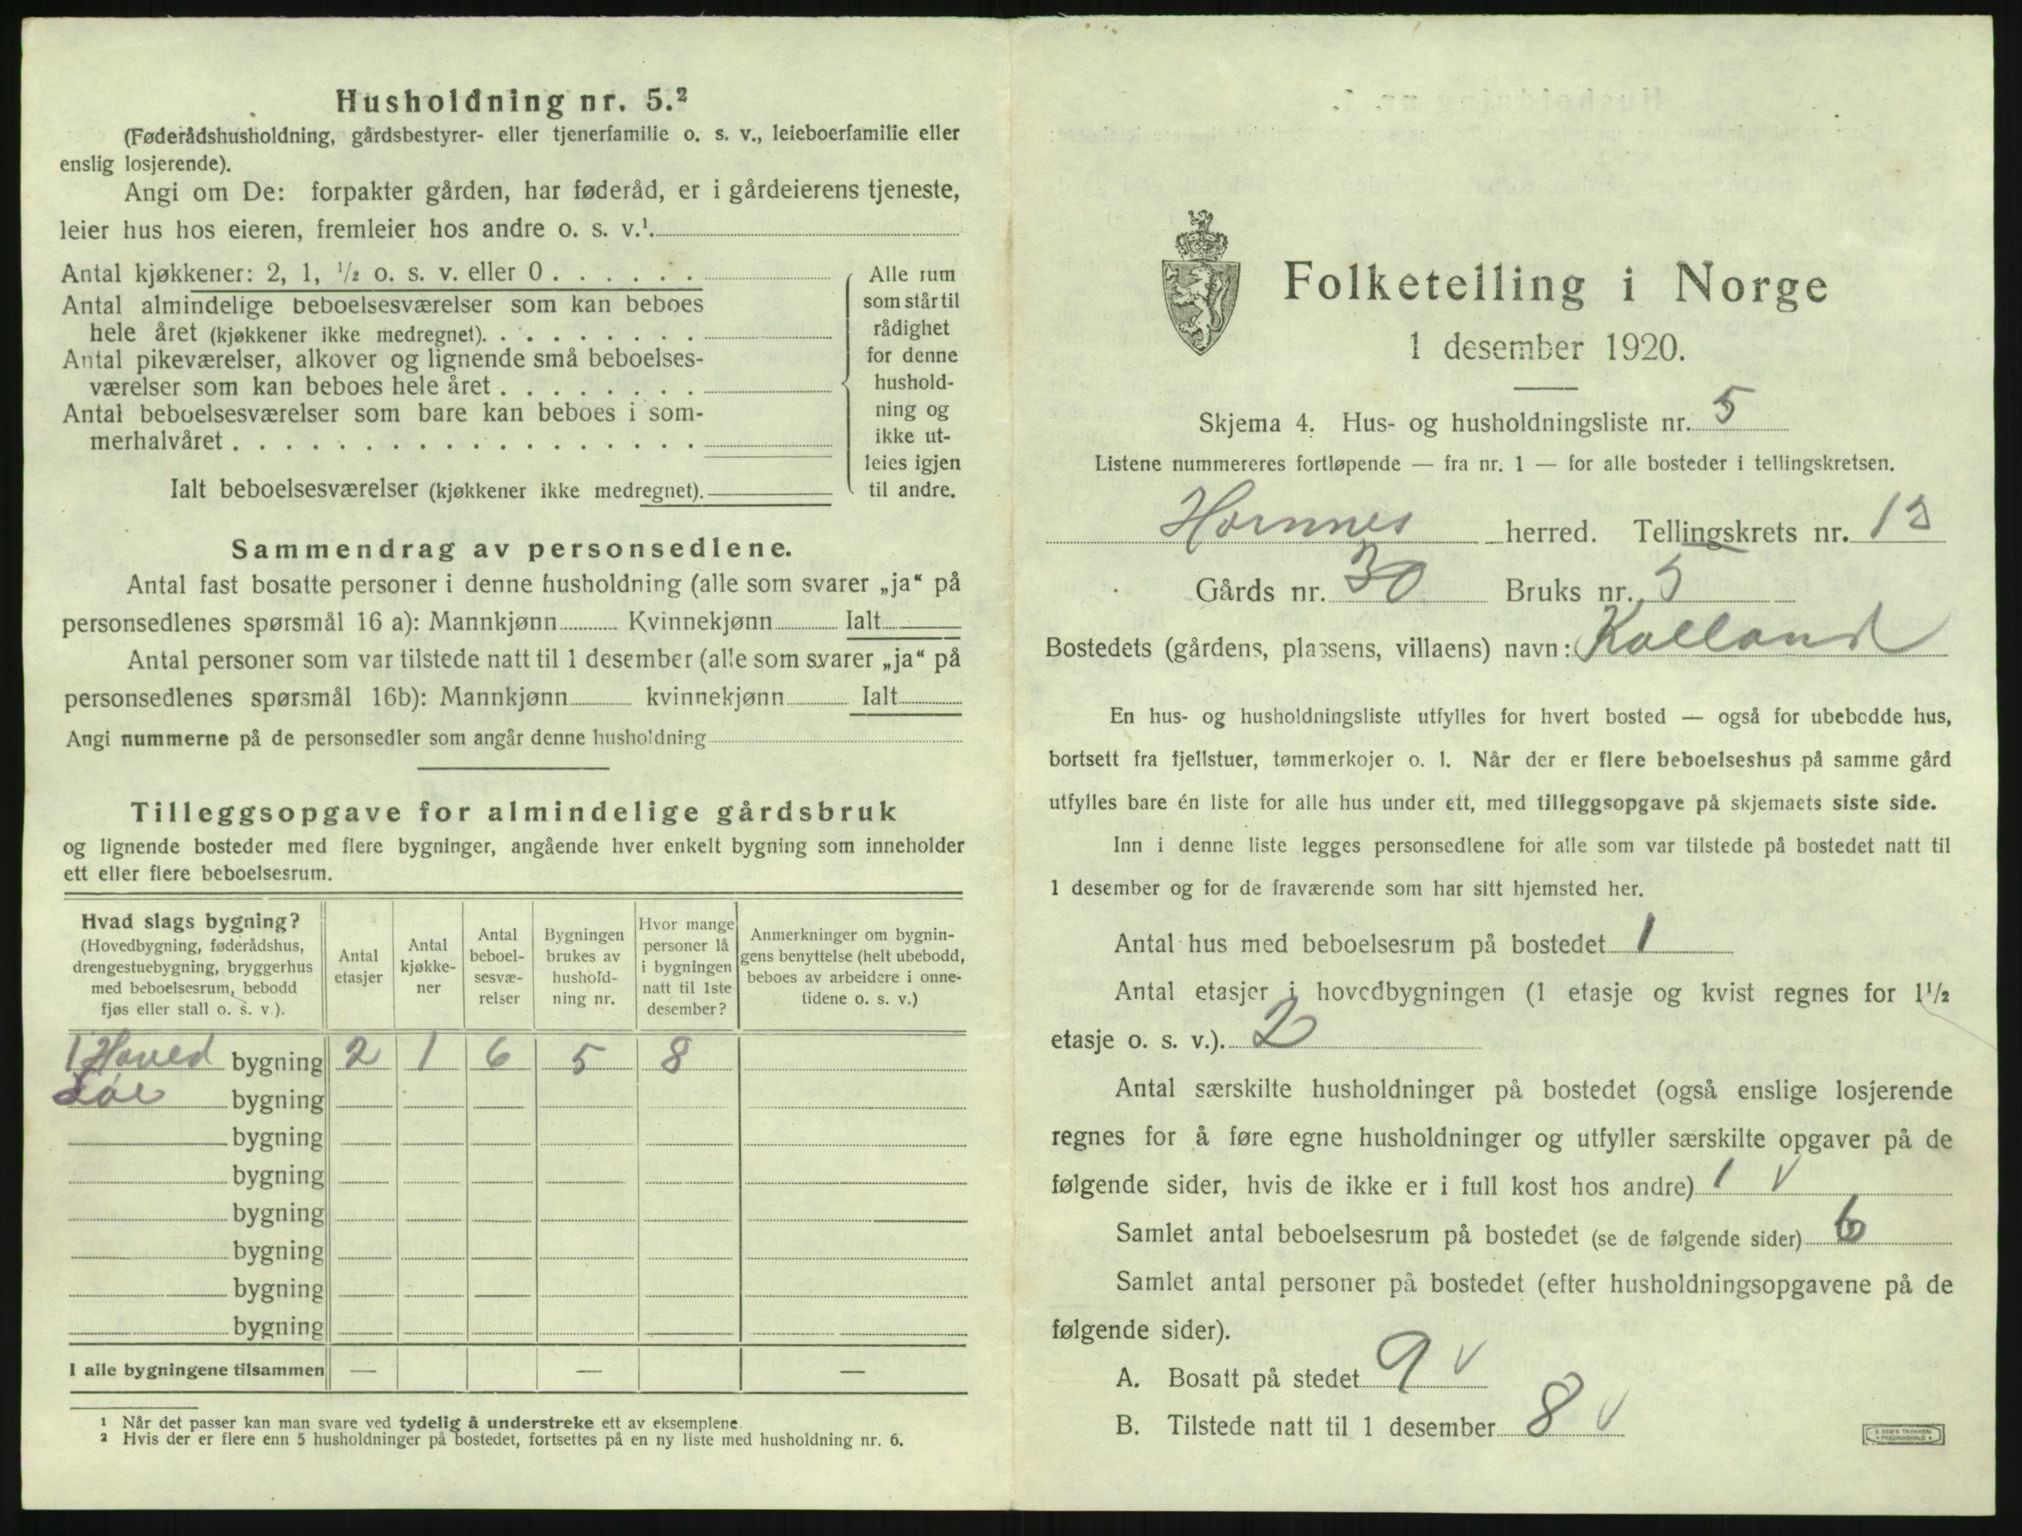 Husholdning nr. 5.²
(Føderådshusholdning, gårdsbestyrer- eller tjenerfamilie o. s. v., leieboerfamilie eller
enslig losjerende).
Angi om De: forpakter gården, har føderåd, er i gårdeierens tjeneste,
leier hus hos eieren, fremleier hos andre o. s. v.¹.
Antal kjøkkener: 2, 1, ½ o. s. v. eller 0 . . . . . .
Antal almindelige beboelsesværelser som kan beboes
hele året (kjøkkener ikke medregnet). . . . . . . . .
Antal pikeværelser, alkover og lignende små beboelses-
værelser som kan beboes hele året . . . . . . . .
Antal beboelsesværelser som bare kan beboes i som-
merhalvåret . . . . . . . . . . . . . . . . . .
Ialt beboelsesværelser (kjøkkener ikke medregnet).
Alle rum
som står til
rådighet
for denne
hushold-
ning og
ikke ut-
leies igjen
til andre.
Sammendrag av personsedlene.
Antal fast bosatte personer i denne husholdning (alle som svarer „ja“ på
personsedlenes spørsmål 16 a): Mannkjønn Kvinnekjønn Ialt
Antal personer som var tilstede natt til 1 desember (alle som svarer „ja“ på
personsedlenes spørsmål 16b): Mannkjønn kvinnekjønn Ialt
Angi nummerne på de personsedler som angår denne husholdning
Tilleggsopgave for almindelige gårdsbruk
og lignende bosteder med flere bygninger, angående hver enkelt bygning som inneholder
ett eller flere beboelsesrum.
Hvad slags bygning?
(Hovedbygning, føderådshus,
drengestuebygning, bryggerhus
med beboelsesrum, bebodd
fjøs eller stall o. s. v.).
Antal
etasjer
Antal
kjøkke-
ner
Antal
beboel-
sesvæ-
relser
Bygningen
brukes av
hushold-
ning nr.
Hvor mange
personer lå
i bygningen
natt til 1ste
desember?
Anmerkninger om bygnin-
gens benyttelse (helt ubebodd,
beboes av arbeidere i onne-
tidene o. s. v.)
1 Hoved bygning 2 1 6 5 8
bygning
bygning
bygning
bygning
bygning
bygning
bygning
I alle bygningene tilsammen — — —
¹ Når det passer kan man svare ved tydelig å understreke ett av eksemplene.
² Hvis der er flere enn 5 husholdninger på bostedet, fortsettes på en ny liste med husholdning nr. 6.
Folketelling i Norge
1 desember 1920.
Skjema 4. Hus- og husholdningsliste nr. 5
Listene nummereres fortløpende — fra nr. 1 — for alle bosteder i tellingskretsen.
Hornnes herred. Tellingskrets nr. 12
Gårds nr. 30 Bruks nr. 5
Bostedets (gårdens, plassens, villaens) navn: Kalland
En hus- og husholdningsliste utfylles for hvert bosted — også for ubebodde hus,
bortsett fra fjellstuer, tømmerkojer o. l. Når der er flere beboelseshus på samme gård
utfylles bare én liste for alle hus under ett, med tilleggsopgave på skjemaets siste side.
Inn i denne liste legges personsedlene for alle som var tilstede på bostedet natt til
1 desember og for de fraværende som har sitt hjemsted her.
Antal hus med beboelsesrum på bostedet 1
Antal etasjer i hovedbygningen (1 etasje og kvist regnes for 1½
etasje o. s. v.). 2
Antal særskilte husholdninger på bostedet (også enslige losjerende
regnes for å føre egne husholdninger og utfyller særskilte opgaver på de
følgende sider, hvis de ikke er i full kost hos andre) 1 v
Samlet antal beboelsesrum på bostedet (se de følgende sider) 6
Samlet antal personer på bostedet (efter husholdningsopgavene på de
følgende sider).
A. Bosatt på stedet 9 v
B. Tilstede natt til 1 desember 8 v